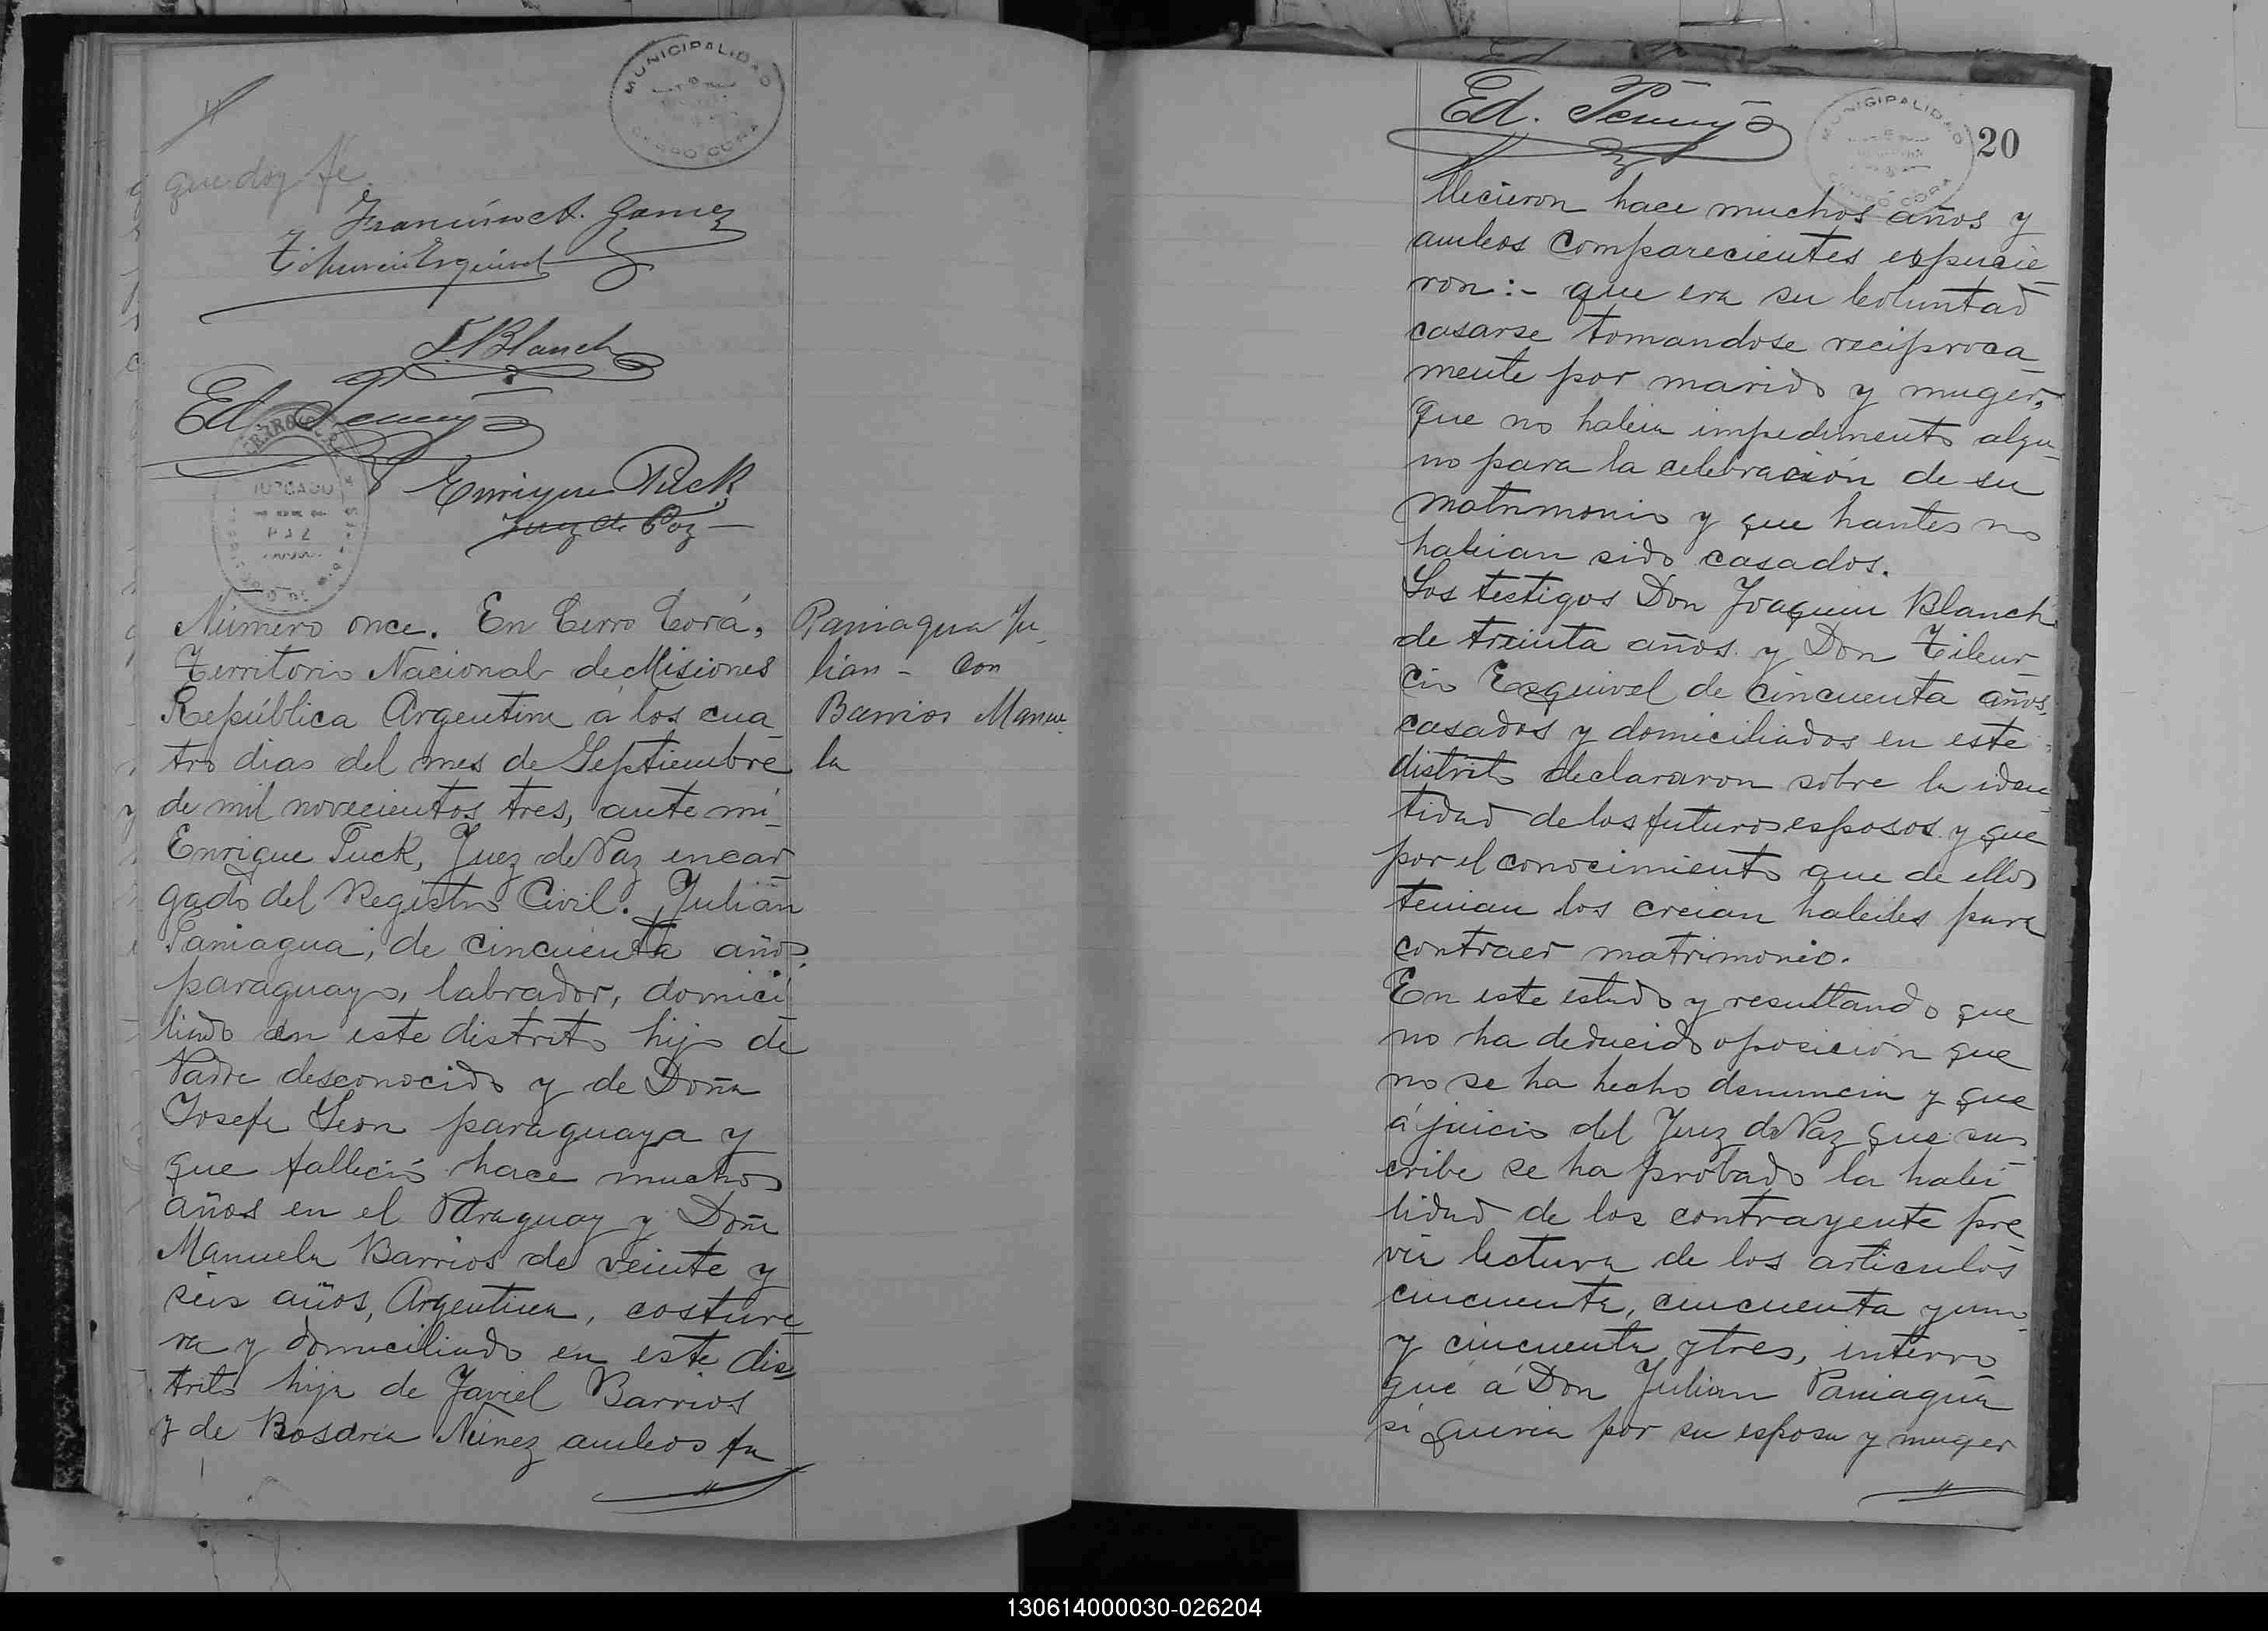 MUNICIPALIDAD
CERRO CORA
que doy fe
Francisco A. Gomez
Tiburcio Esquivel
J. Blanch
Ed.
JUZGADO
PAZ
Enrique Puck
Juez de Paz
Número once. En Cerro Corá,
Territorio Nacional de Misiones
República Argentina á los cua
tro dias del mes de Septiembre
de mil novecientos tres, ante mi
Enrique Puck, Juez de Paz encar
gado del Registro Civil. Julián
Paniagua, de cincuenta años
paraguayo, labrador, domici
liado en este distrito hijo de
Padre desconocido y de Doña
Josefa Leon paraguaya y
que falleció hace muchos
años en el Paraguay y Doña
Manuela Barrios de veinte y
seis años, Argentina, costure
ra y domiciliado en este dis
trito hija de Javiel Barrios
y de Rosaria Núnez ambos fa
Paniagua Ju
lian - Con
Barrios Manue
la
Ed.
MUNICIPALIDAD
CERRO CORA
20
llecieron hace muchos años y
ambos comparecientes expucie
ron:- que era su boluntad
casarse tomandose reciproca
mente por marido y muger,
que no habia impedimento algu
no para la celebración de su
matrimonio y que hantes no
habian sido casados.
Los testigos Don Joaquin Blanch
de treinta años y Don Tibur
cio Esquivel de cincuenta años,
casados y domiciliados en este
distrito declararon sobre la iden
tidad de los futuros esposos y que
por el conocimiento que de ellos
tenian los creian habiles para
contraer matrimonio.
En este estado y resultando que
no ha deducido oposicion que
no se ha hecho denuncia y que
á juicio del Juez de Paz que sus
cribe se ha probado la habi
lidad de los contrayente pre
via lectura de los articulos
cincuenta, cincuenta y uno
y cincuenta y tres, interro
gué á Don Julian Paniagua
si queria por su esposa y muger
130614000030-026204